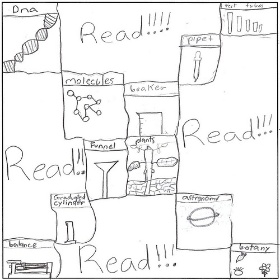 Dna
Read!!!!
test tubes
pipet
molecules
beaker
Read!!!
Read!!
funnel
plants
Graduated
cylinder
astronomy
balance
Read!!!
botany